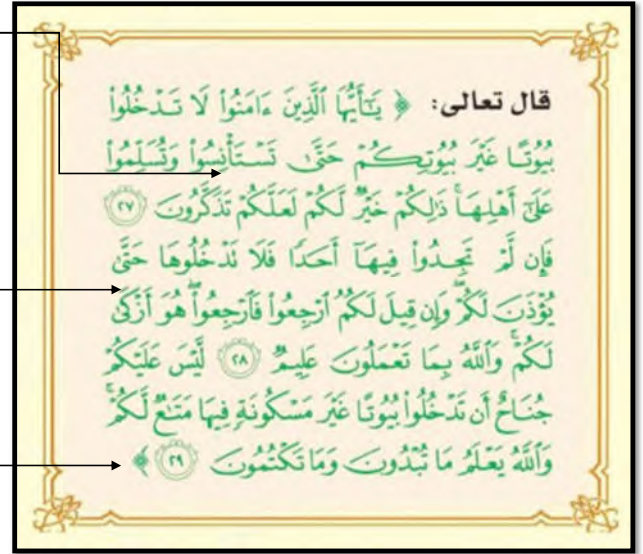 قال تعالى: ﴿ يَٰٓأَيُّهَا ٱلَّذِينَ ءَامَنُوا۟ لَا تَدْخُلُوا۟
بُيُوتًا غَيْرَ بُيُوتِكُمْ حَتَّىٰ تَسْتَأْنِسُوا۟ وَتُسَلِّمُوا۟
عَلَىٰٓ أَهْلِهَا ۚ ذَٰلِكُمْ خَيْرٌ لَّكُمْ لَعَلَّكُمْ تَذَكَّرُونَ ٢٧
فَإِن لَّمْ تَجِدُوا۟ فِيهَآ أَحَدًا فَلَا تَدْخُلُوهَا حَتَّىٰ
يُؤْذَنَ لَكُمْ ۖ وَإِن قِيلَ لَكُمُ ٱرْجِعُوا۟ فَٱرْجِعُوا۟ ۖ هُوَ أَزْكَىٰ
لَكُمْ ۚ وَٱللَّهُ بِمَا تَعْمَلُونَ عَلِيمٌ ٢٨ لَّيْسَ عَلَيْكُمْ
جُنَاحٌ أَن تَدْخُلُوا۟ بُيُوتًا غَيْرَ مَسْكُونَةٍ فِيهَا مَتَٰعٌ لَّكُمْ ۚ
وَٱللَّهُ يَعْلَمُ مَا تُبْدُونَ وَمَا تَكْتُمُونَ ٢٩ ﴾